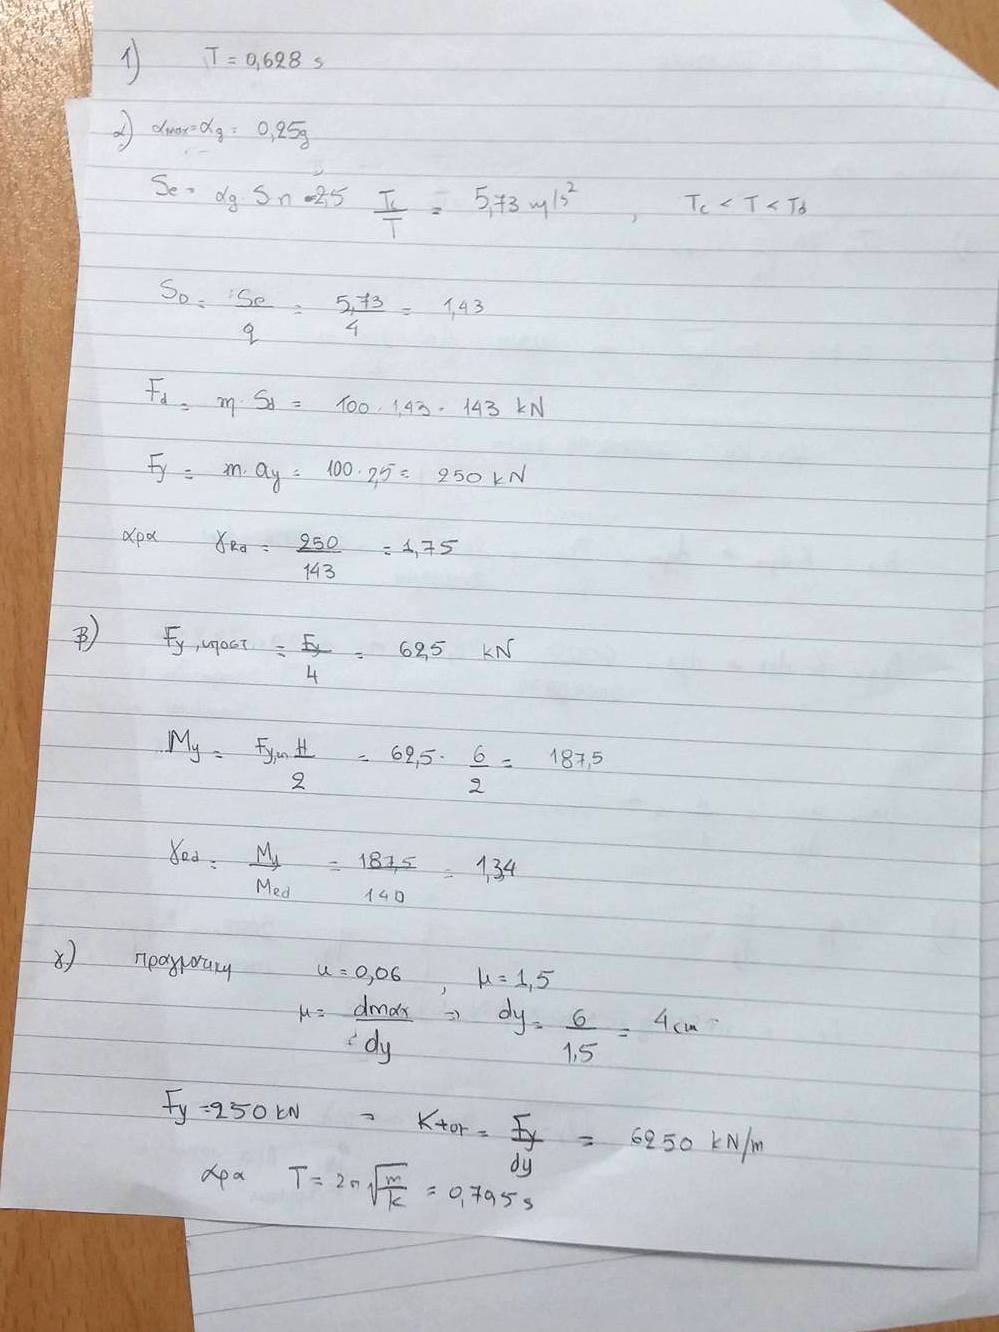 1) T = 0,628 s
α) αmax = αg = 0,25g
Se = αg · S n · 2,5 Tc/T = 5,73 m/s² , Tc < T < Td
SD = Se/q = 5,73/4 = 1,43
Fd = m · Sd = 100 · 1,43 = 143 kN
Fy = m · ay = 100 · 2,5 = 250 kN
αρα γRd = 250/143 = 1,75
β) Fy,υποστ = Fy/4 = 62,5 kN
My = Fy,υπ H/2 = 62,5 · 6/2 = 187,5
γRd = My/Med = 187,5/140 = 1,34
γ) πραγματικη u = 0,06 , μ = 1,5
μ = dmax/dy => dy = 6/1,5 = 4cm
Fy = 250 kN - Kτοτ = Fy/dy = 6250 kN/m
αρα T = 2π√m/k = 0,795 s